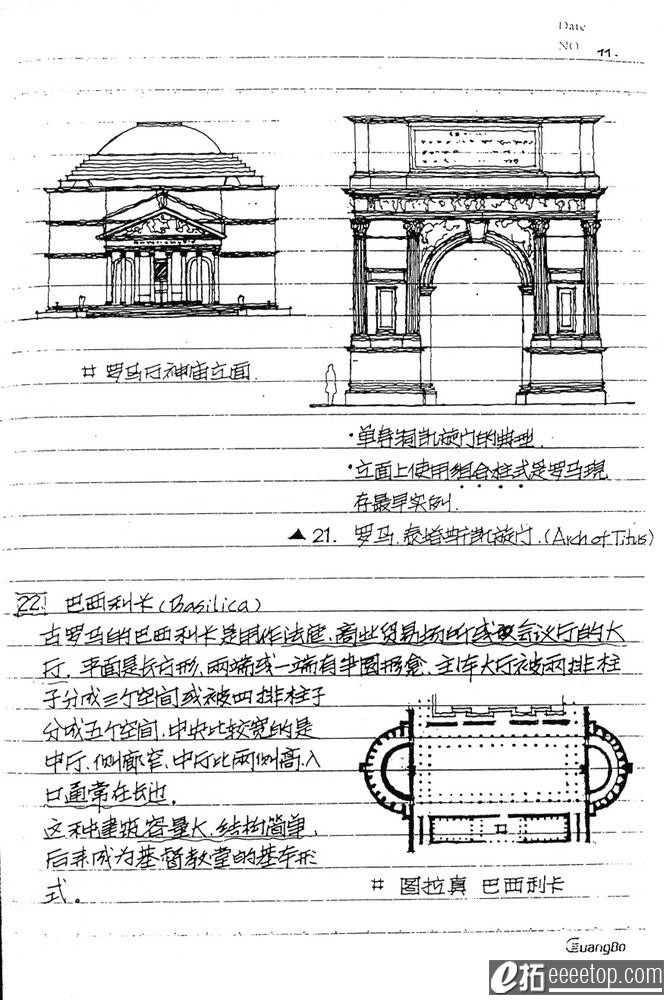 Date
NO 11.
# 罗马万神庙立面.
·单券洞凯旋门的典型.
·立面上使用组合柱式是罗马现
存最早实例.
▲21. 罗马.泰塔斯凯旋门.(Arch of Titus)
22. 巴西利卡(Basilica)
古罗马的巴西利卡是用作法庭、商业贸易场所或会议厅的大
厅.平面是长方形,两端或一端有半圆形龛.主体大厅被两排柱
子分成三个空间或被四排柱子
分成五个空间.中央比较宽的是
中厅.侧廊窄,中厅比两侧高.入
口通常在长边.
这种建筑容量大,结构简单,
后来成为基督教堂的基本形
式。
# 图拉真 巴西利卡
GuangBo
e拓 eeeetop.com